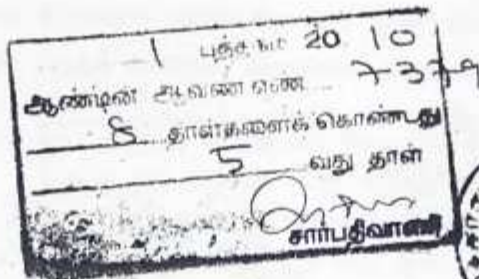 1 புத்தகம் 20 10
ஆண்டின் ஆவண எண் 7379
8 தாள்களைக் கொண்டது
5 வது தாள்
சார்பதிவாளர்